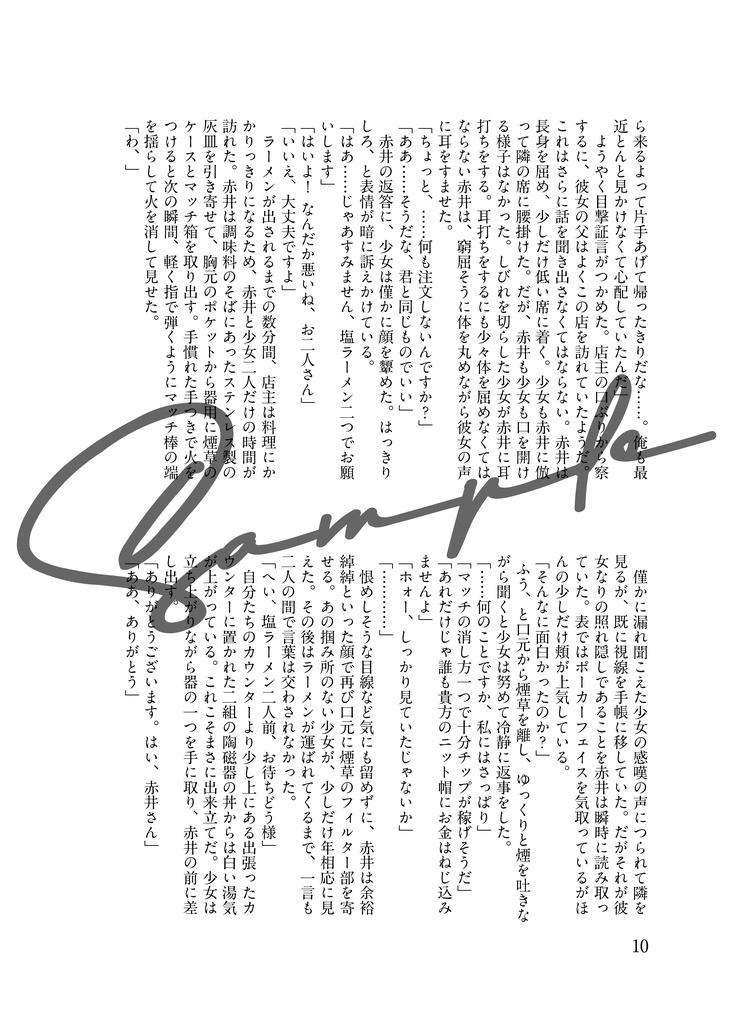 ら来るよって片手あげて帰ったきりだな……。俺も最
近とんと見かけなくて心配していたんだ」
　ようやく目撃証言がつかめた。店主の口ぶりから察
するに、彼女の父はよくこの店を訪れていたようだ。
これはさらに話を聞き出さなくてはならない。赤井は
長身を屈め、少しだけ低い席に着く。少女も赤井に倣
って隣の席に腰掛けた。だが、赤井も少女も口を開け
る様子はなかった。しびれを切らした少女が赤井に耳
打ちをする。耳打ちをするにも少々体を屈めなくては
ならない赤井は、窮屈そうに体を丸めながら彼女の声
に耳をすませた。
「ちょっと、……何も注文しないんですか？」
「ああ……そうだな、君と同じものでいい」
　赤井の返答に、少女は僅かに顔を顰めた。はっきり
しろ、と表情が暗に訴えかけている。
「はあ……じゃあすみません、塩ラーメン二つでお願
いします」
「はいよ！　なんだか悪いね、お二人さん」
「いいえ、大丈夫ですよ」
　ラーメンが出されるまでの数分間、店主は料理にか
かりっきりになるため、赤井と少女二人だけの時間が
訪れた。赤井は調味料のそばにあったステンレス製の
灰皿を引き寄せて、胸元のポケットから器用に煙草の
ケースとマッチ箱を取り出す。手慣れた手つきで火を
つけると次の瞬間、軽く指で弾くようにマッチ棒の端
を揺らして火を消して見せた。
「わ、」
　僅かに漏れ聞こえた少女の感嘆の声につられて隣を
見るが、既に視線を手帳に移していた。だがそれが彼
女なりの照れ隠しであることを赤井は瞬時に読み取っ
ていた。表ではポーカーフェイスを気取っているがほ
んの少しだけ頬が上気している。
「そんなに面白かったのか？」
　ふう、と口元から煙草を離し、ゆっくりと煙を吐きな
がら聞くと少女は努めて冷静に返事をした。
「……何のことですか、私にはさっぱり」
「マッチの消し方一つで十分チップが稼げそうだ」
「あれだけじゃ誰も貴方のニット帽にお金はねじ込み
ませんよ」
「ホォー、しっかり見ていたじゃないか」
「…………」
　恨めしそうな目線など気にも留めずに、赤井は余裕
綽綽といった顔で再び口元に煙草のフィルター部を寄
せる。あの掴み所のない少女が、少しだけ年相応に見
えた。その後はラーメンが運ばれてくるまで、一言も
二人の間で言葉は交わされなかった。
「へい、塩ラーメン二人前、お待ちどう様」
　自分たちのカウンターより少し上にある出張ったカ
ウンターに置かれた二組の陶磁器の丼からは白い湯気
が上がっている。これこそまさに出来立てだ。少女は
立ち上がりながら器の一つを手に取り、赤井の前に差
し出す。
「ありがとうございます。はい、赤井さん」
「ああ、ありがとう」
10
Sample